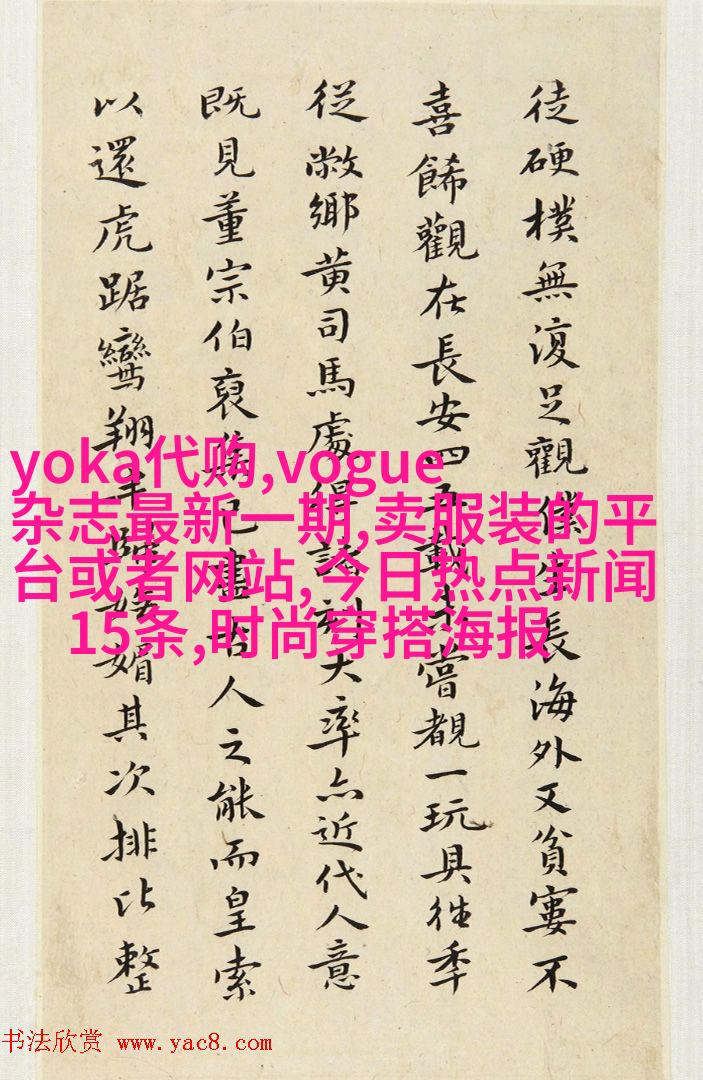 徒硬樸無復足觀僕生長海外又貧窶不
喜觀在長安四五載未嘗覩一玩具往季
從敝鄉黄司馬處得諸刻大率亦近代人意
既見董宗伯裒集已盡古人之能而皇索
以還虎踞鸞翔媚其次排比整
yoka代购,vogue
杂志最新一期,卖服装的平
台或者网站,今日热点新闻
15条,时尚穿搭海报
书法欣赏 www.yac8.com